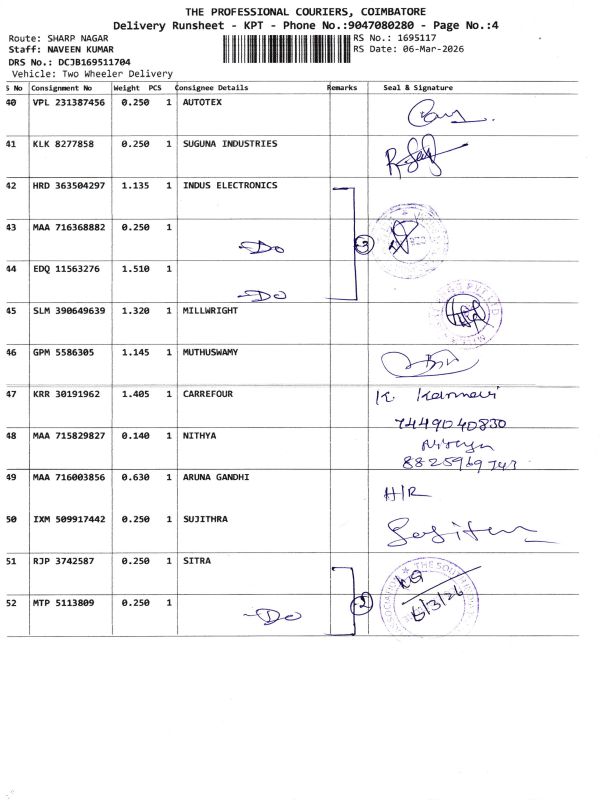 THE PROFESSIONAL COURIERS, COIMBATORE
Delivery Runsheet - KPT - Phone No.:9047080280 - Page No.:4
Route: SHARP NAGAR RS No.: 1695117
Staff: NAVEEN KUMAR RS Date: 06-Mar-2026
DRS No.: DCJB169511704
Vehicle: Two Wheeler Delivery
S No Consignment No Weight PCS Consignee Details Remarks Seal & Signature
40 VPL 231387456 0.250 1 AUTOTEX
41 KLK 8277858 0.250 1 SUGUNA INDUSTRIES
42 HRD 363504297 1.135 1 INDUS ELECTRONICS
43 MAA 716368882 0.250 1
-Do 3
44 EDQ 11563276 1.510 1
-Do
45 SLM 390649639 1.320 1 MILLWRIGHT
PVT LTD
46 GPM 5586305 1.145 1 MUTHUSWAMY
47 KRR 30191962 1.405 1 CARREFOUR K.
7449040830
48 MAA 715829827 0.140 1 NITHYA
49 MAA 716003856 0.630 1 ARUNA GANDHI
H/R
50 IXM 509917442 0.250 1 SUJITHRA
51 RJP 3742587 0.250 1 SITRA
THE SOUTH
ASSOCIATION
52 MTP 5113809 0.250 1 2 6/3/26
-Do